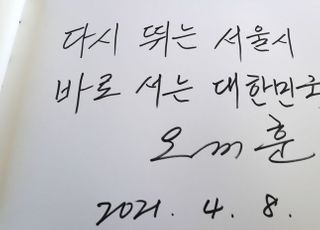 다시 뛰는 서울시
바로 서는 대한민국
오세훈
2021. 4. 8.